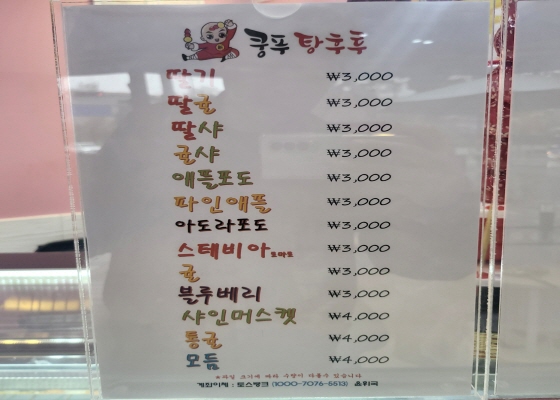 쿵푸 탕후루
딸기 ₩3,000
딸귤 ₩3,000
딸샤 ₩3,000
귤샤 ₩3,000
애플포도 ₩3,000
파인애플 ₩3,000
아도라포도 ₩3,000
스테비아토마토 ₩3,000
귤 ₩3,000
블루베리 ₩3,000
샤인머스켓 ₩4,000
통귤 ₩4,000
모듬 ₩4,000
※과일 크기에 따라 수량이 다를수 있습니다
계좌이체 : 토스뱅크 (1000-7076-5513) 윤위국